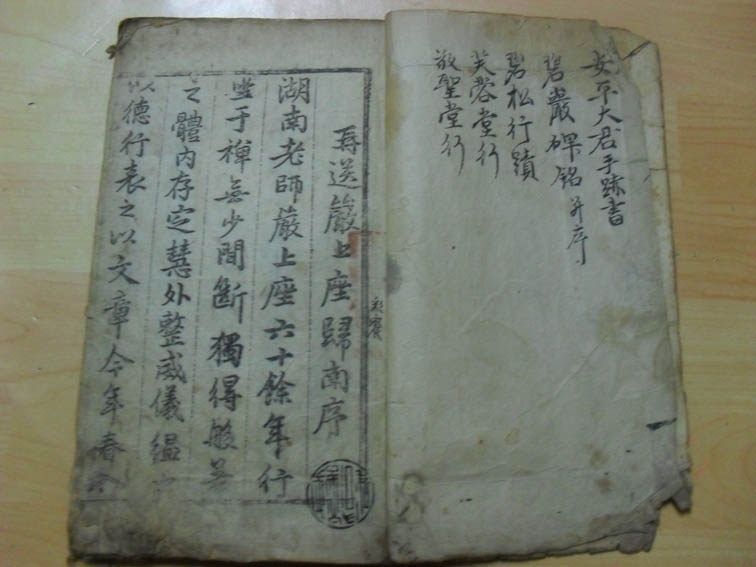 安平大君手跡書
碧巖碑銘并序
碧松行蹟
芙蓉堂行
敬聖堂行
再送巖上座歸南序
湖南老師巖上座六十餘年行
于禪無少間斷獨得般若
之體內存定慧外整威儀縕之
以德行表之以文章今年春